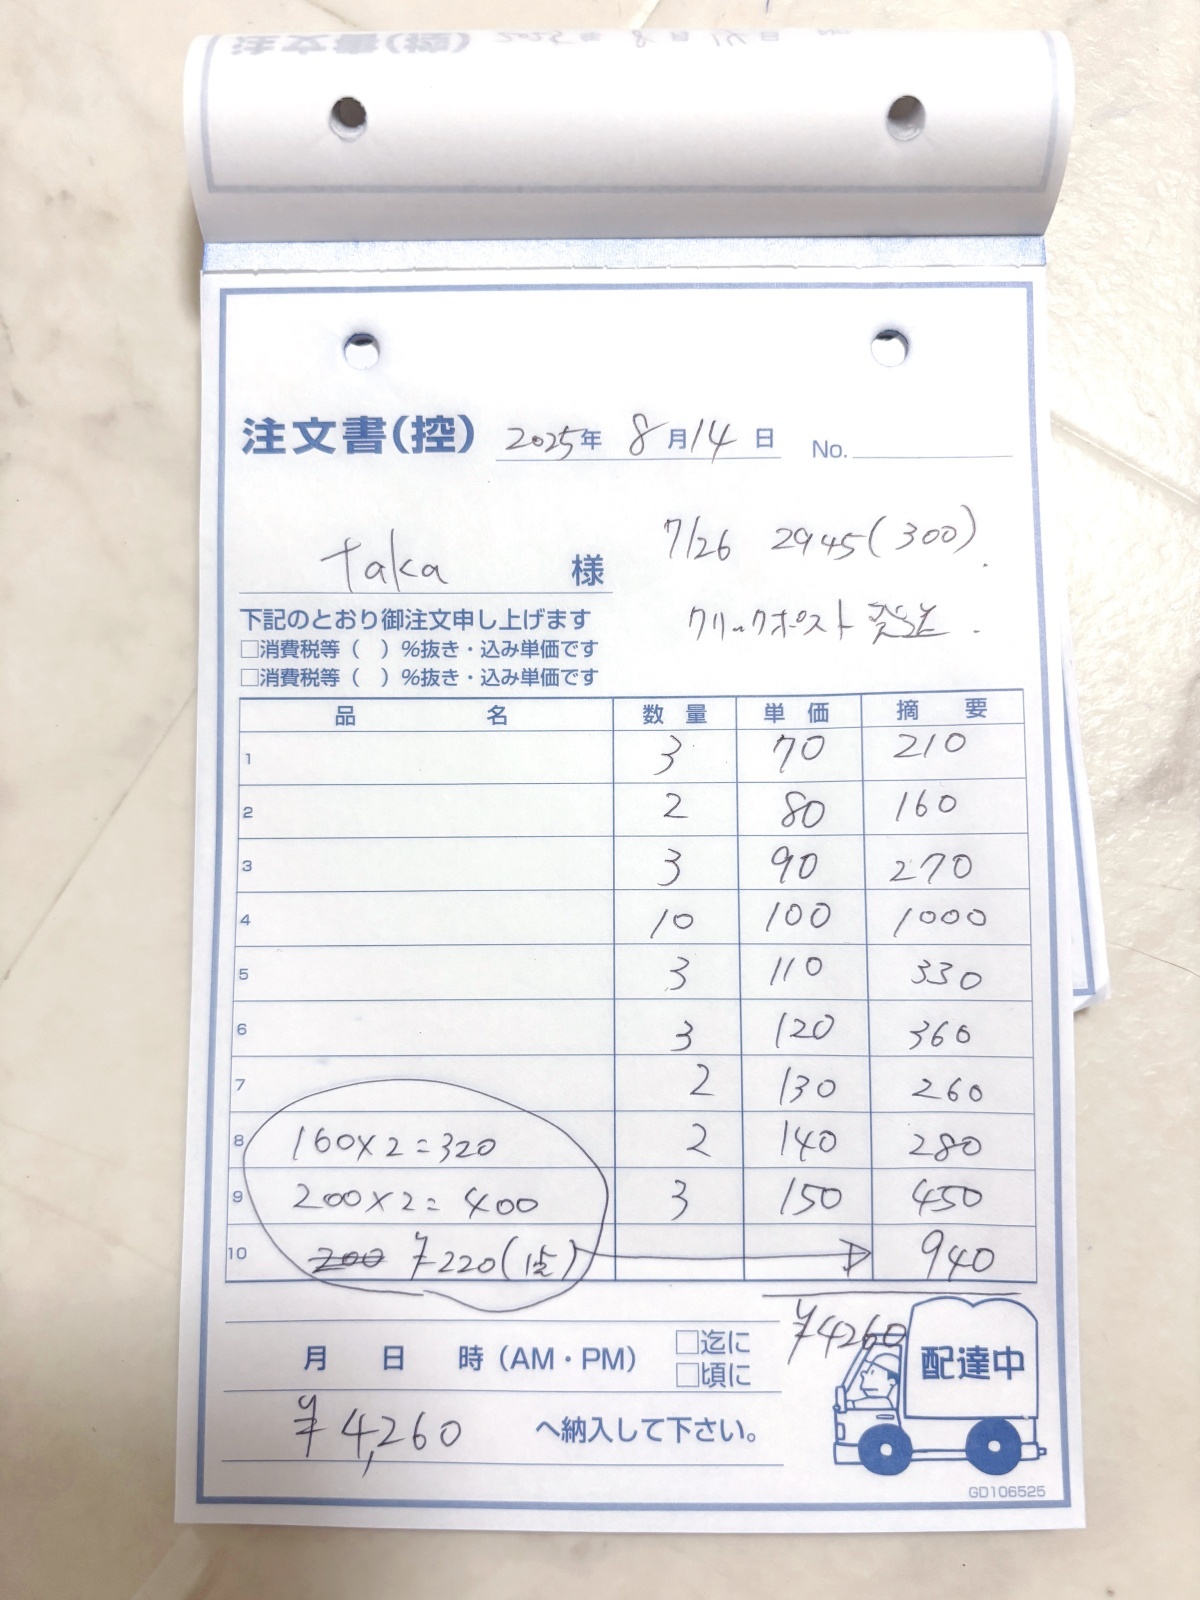 注文書(控) 2025年 8月14日 No.
taka 様
7/26 2945(300).
クリックポスト発送.
下記のとおり御注文申し上げます
□消費税等( )%抜き・込み単価です
□消費税等( )%抜き・込み単価です
品 名 数 量 単 価 摘 要
1 3 70 210
2 2 80 160
3 3 90 270
4 10 100 1000
5 3 110 330
6 3 120 360
7 2 130 260
8 160×2=320 2 140 280
9 200×2=400 3 150 450
10 200 ¥220(1点) 940
¥4260
月 日 時(AM・PM) □迄に
□頃に
¥4,260 へ納入して下さい。
配達中
GD106525